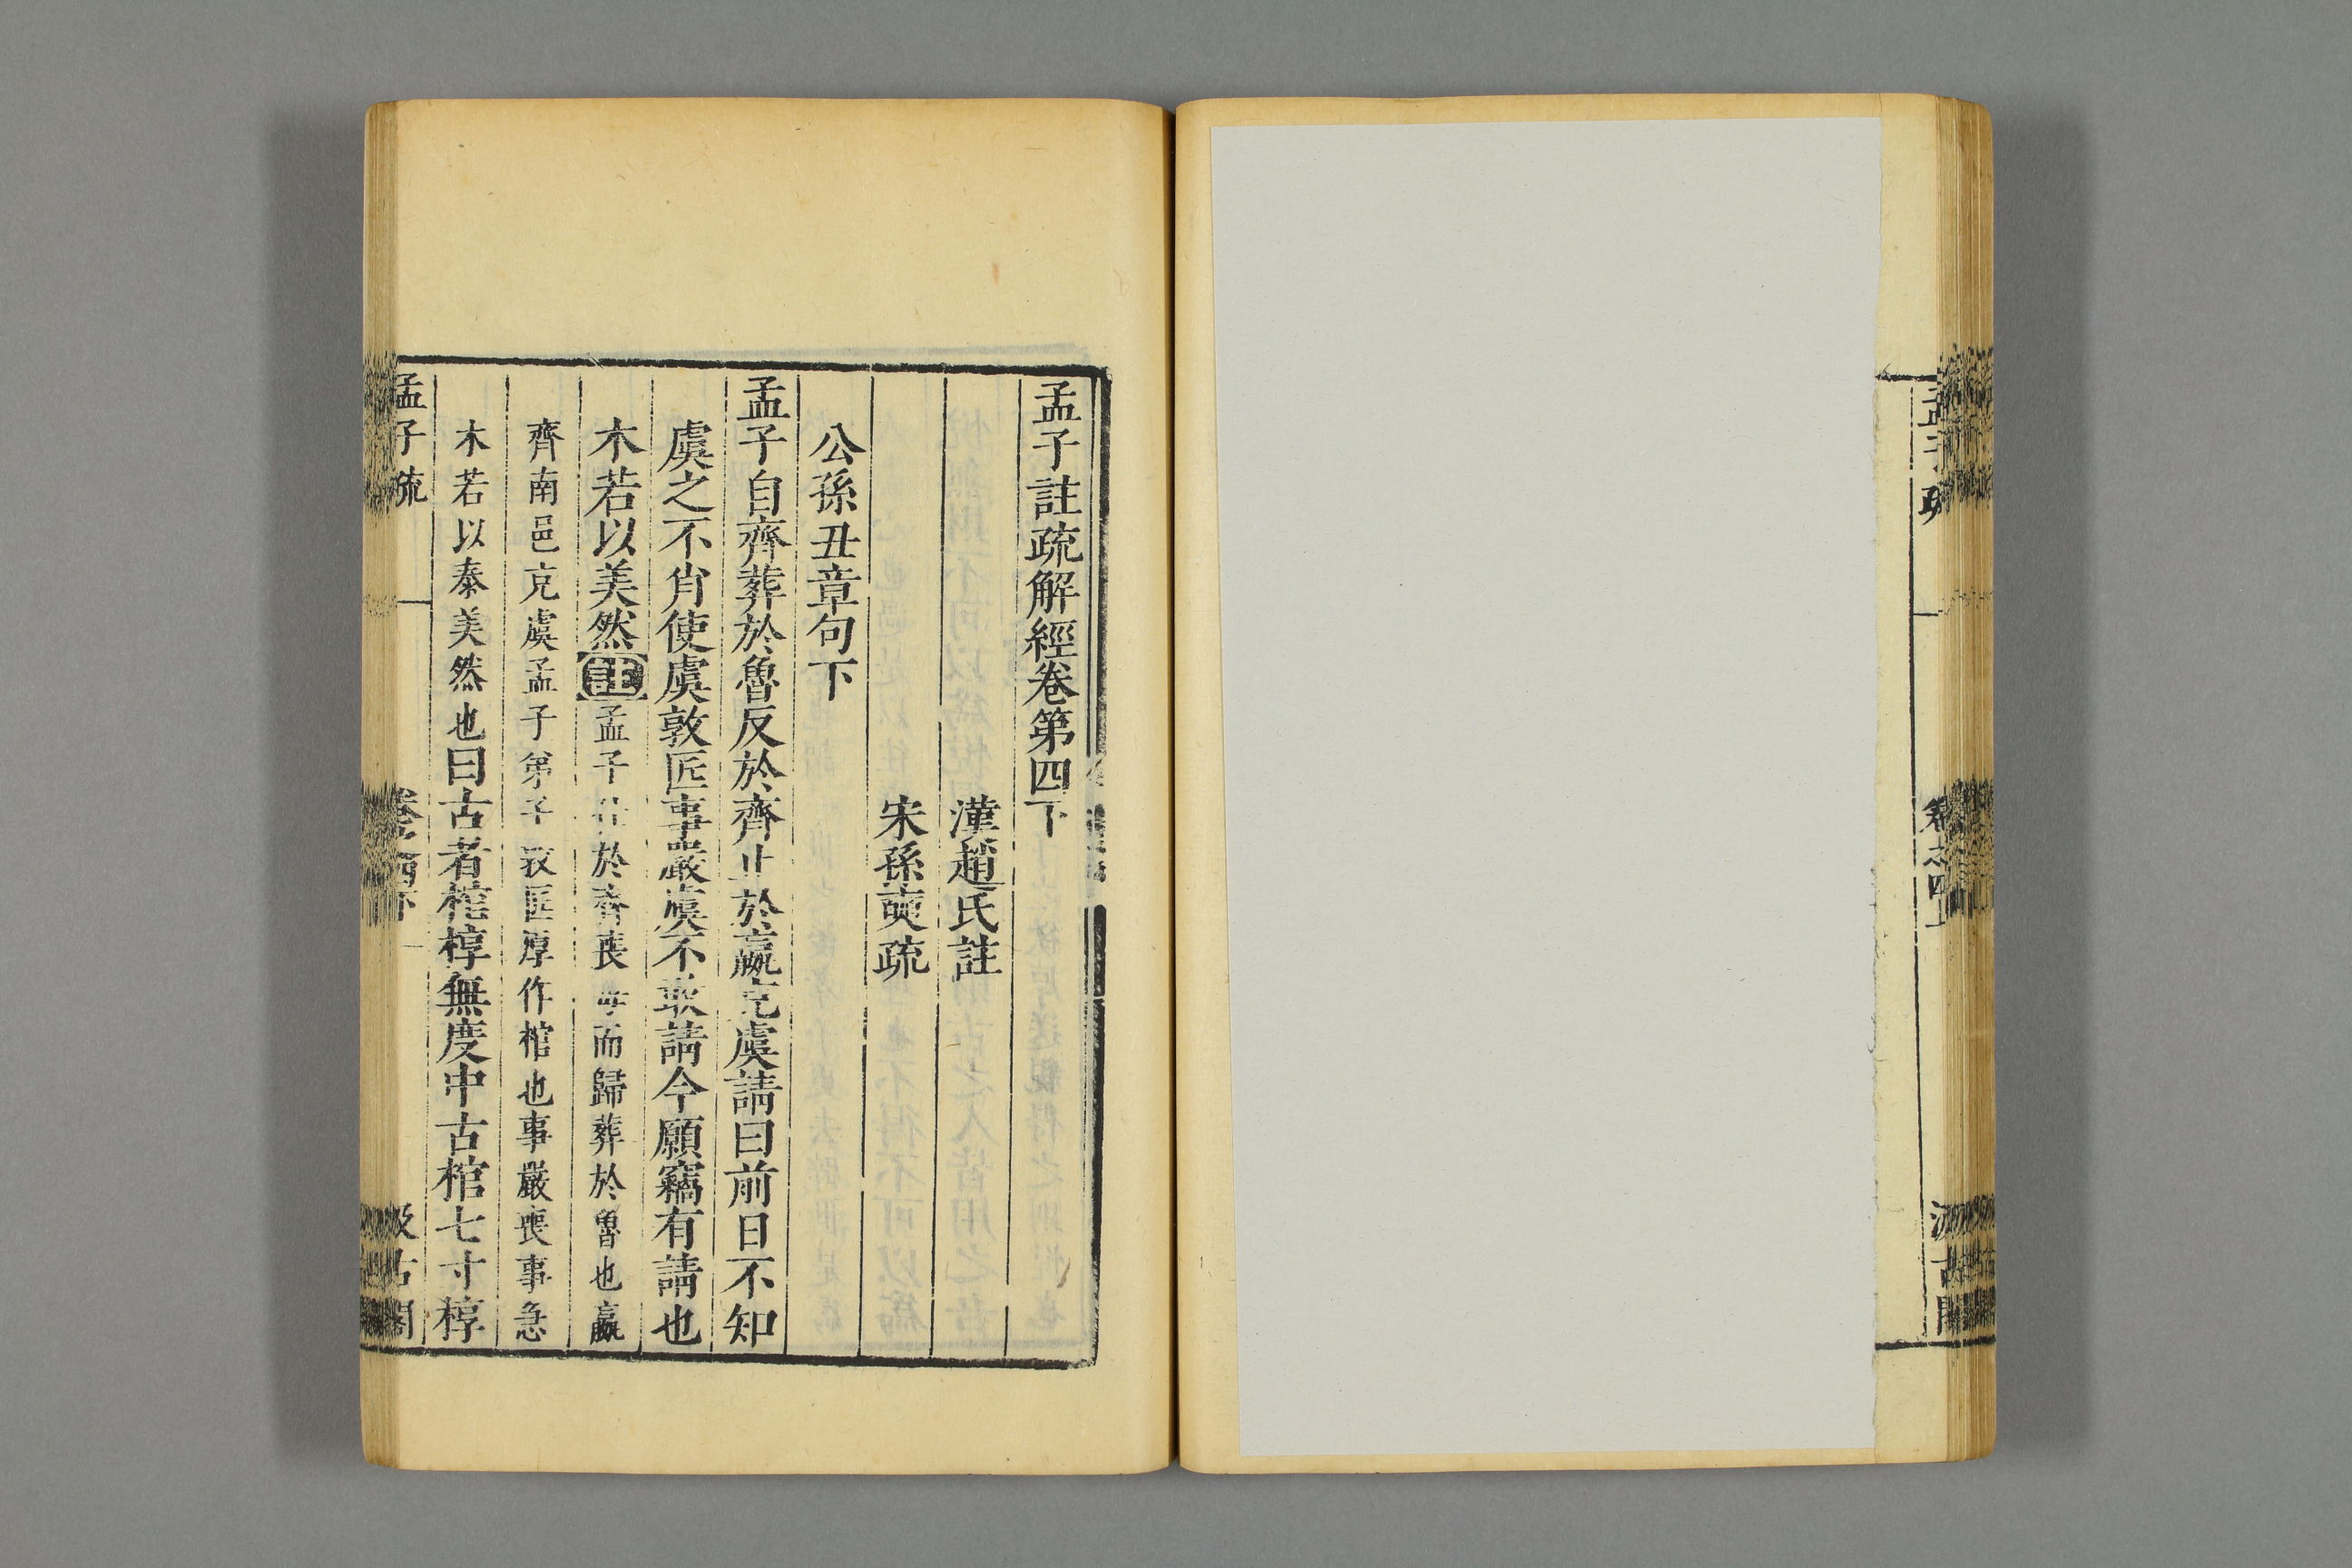 孟子註疏解經卷第四下
漢趙氏註
宋孫奭疏
公孫丑章句下
孟子自齊葬於魯反於齊止於嬴充虞請曰前日不知
虞之不肖使虞敦匠事嚴虞不敢請今願竊有請也
木若以美然註孟子仕於齊喪母而歸葬於魯也嬴
齊南邑充虞孟子弟子敦匠厚作棺也事嚴喪事急
木若以泰美然也曰古者棺椁無度中古棺七寸椁
孟子疏 卷之四下 汲古閣